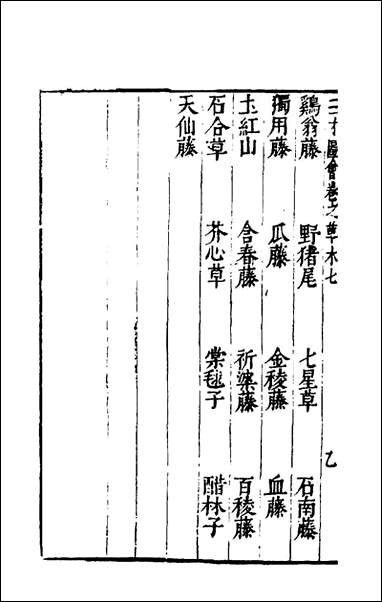 三才圖會卷之草木七
乙
鷄翁藤 野猪尾 七星草 石南藤
獨用藤 瓜藤 金稜藤 血藤
土紅山 含春藤 祈婆藤 百稜藤
石合草 芥心草 棠毬子 醋林子
天仙藤